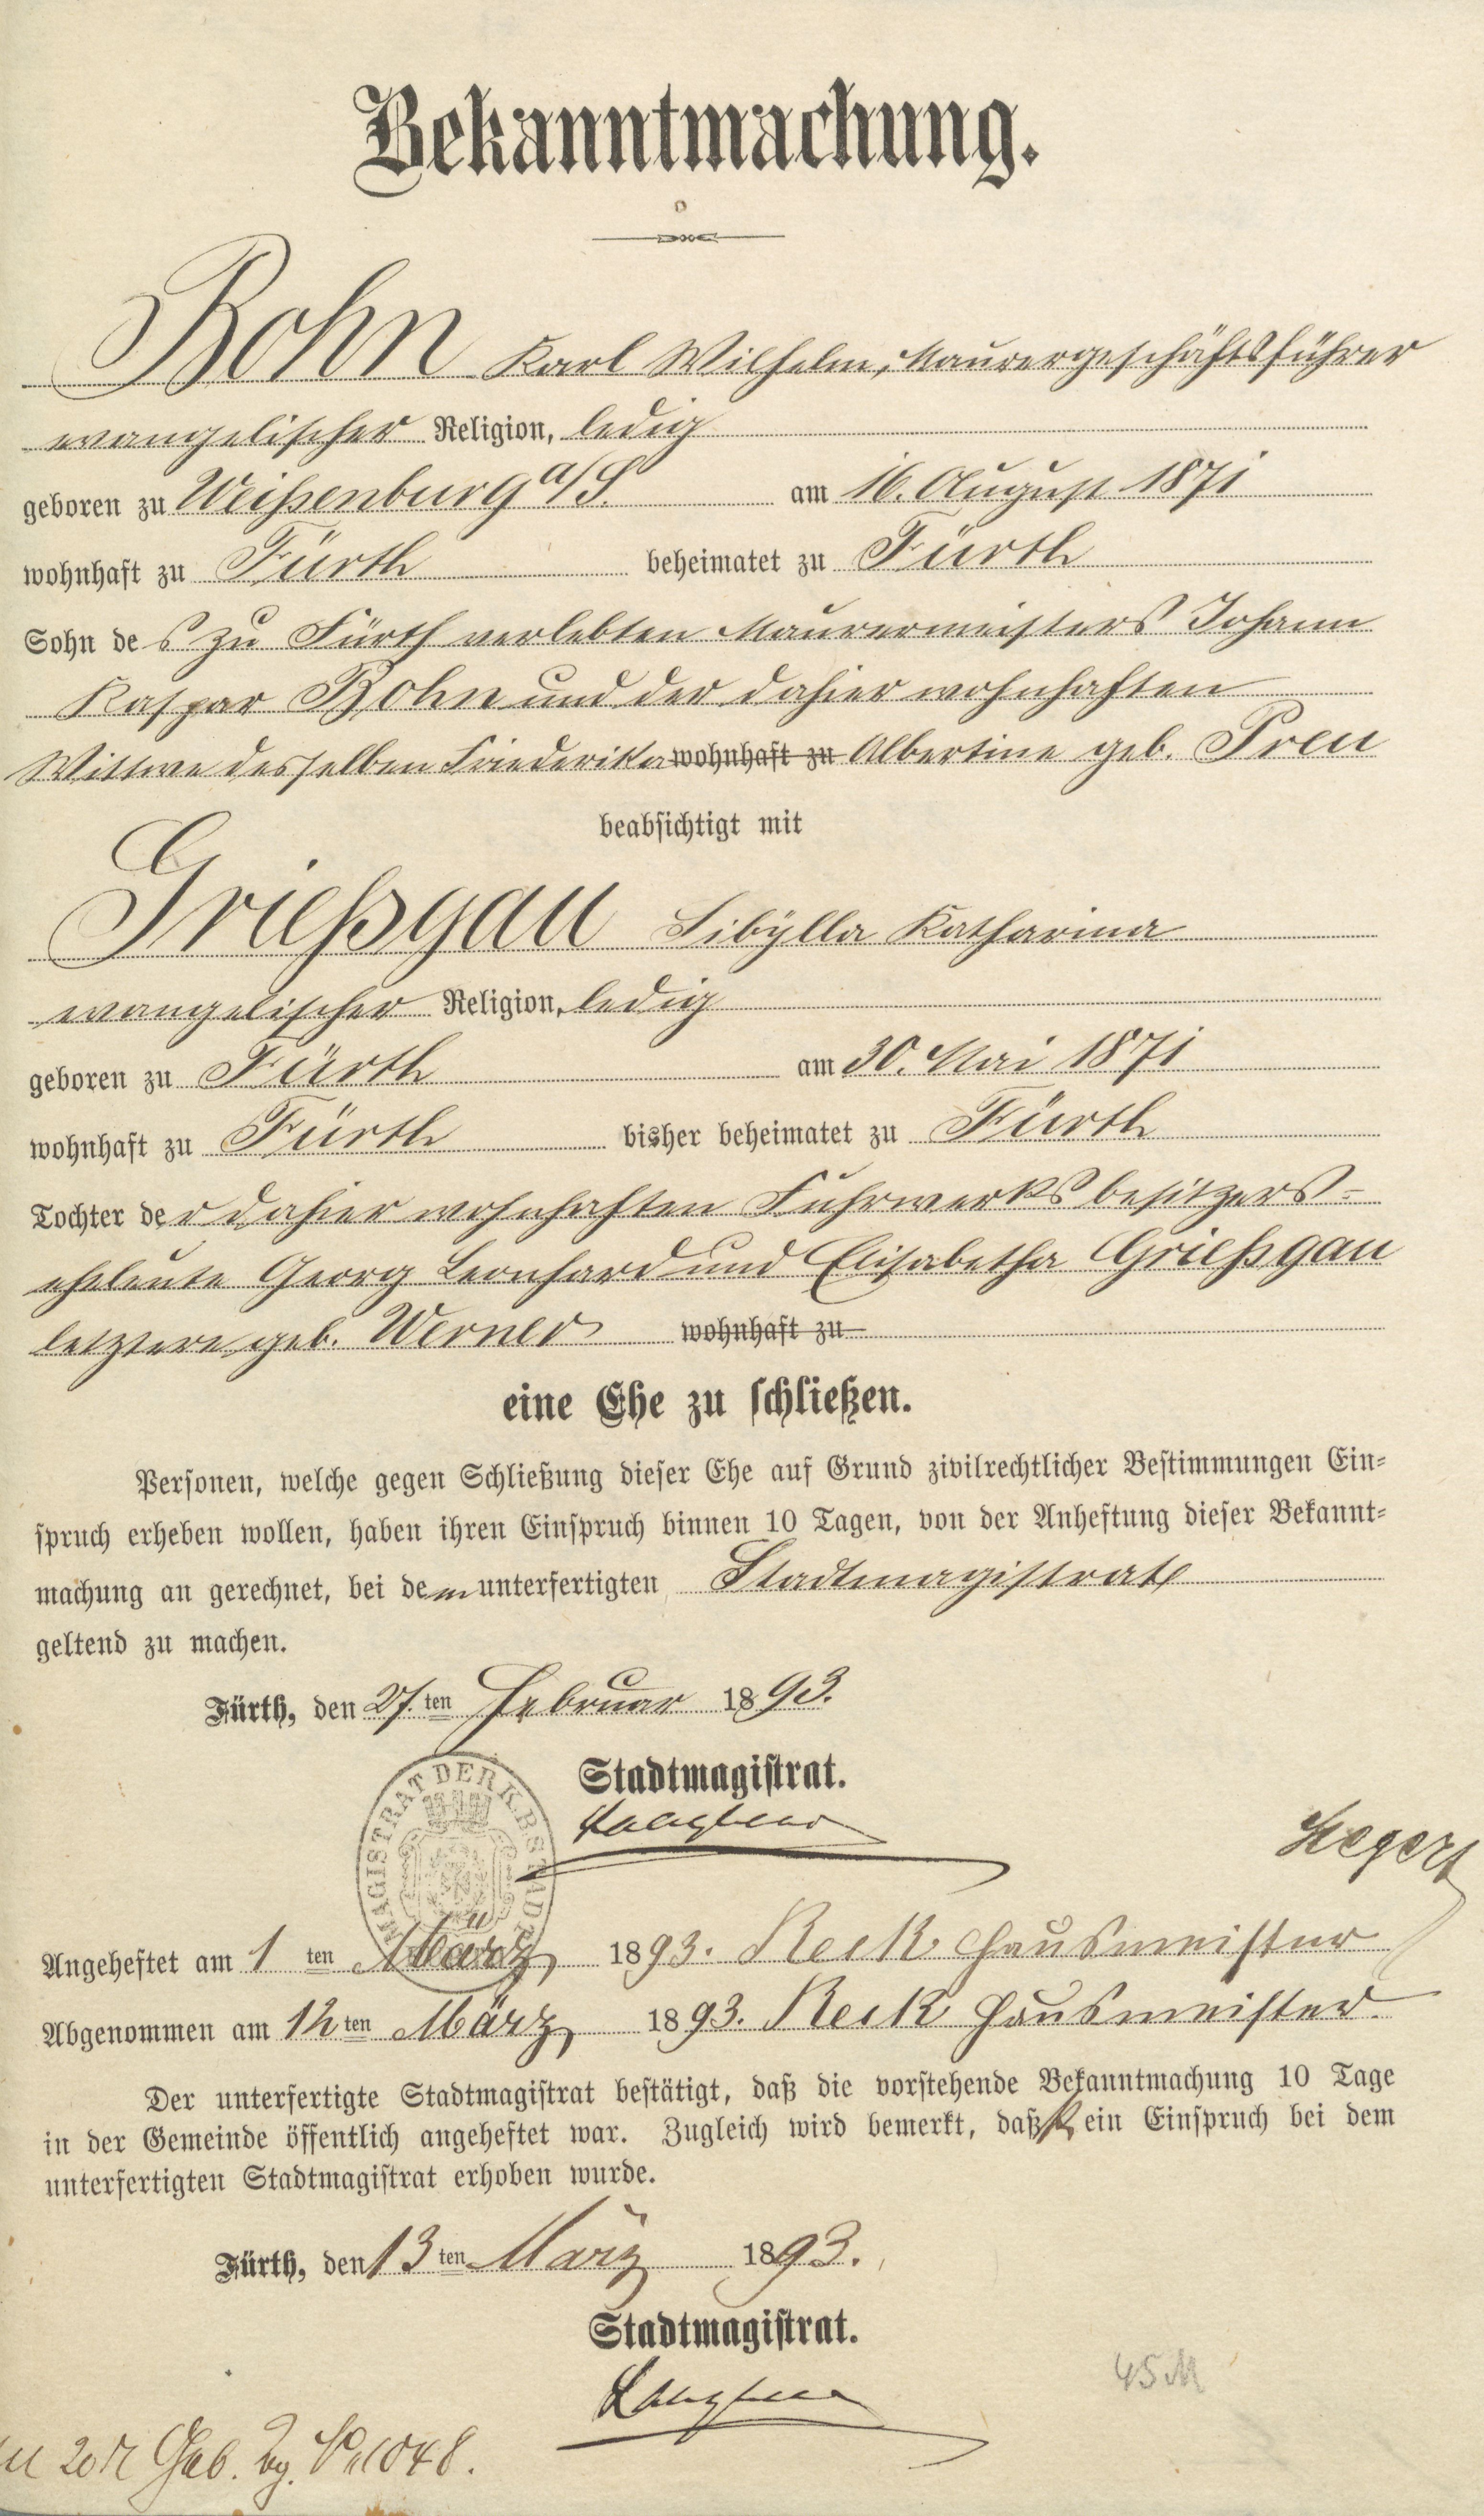 Bekanntmachung.
Bohn Karl Wilhelm, Maurergeschäftsführer
evangelischer Religion, ledig
geboren zu Weißenburg a/S. am 16. August 1871
wohnhaft zu Fürth beheimatet zu Fürth
Sohn des zu Fürth verlebten Maurermeisters Johann
Kaspar Bohn und der dahier wohnhaften
Wittwe desselben Friederika wohnhaft zu Albertine geb. Preu
beabsichtigt mit
Grießgau Sibÿlla Katharina
evangelischer Religion, ledig
geboren zu Fürth am 30. Mai 1871
wohnhaft zu Fürth bisher beheimatet zu Fürth
Tochter der dahier wohnhaften Fuhrwerksbesitzers-
eheleute Georg Leonhard und Elisabetha Grießgau
letztere geb. Werner wohnhaft zu
eine Ehe zu schließen.
Personen, welche gegen Schließung dieser Ehe auf Grund zivilrechtlicher Bestimmungen Ein-
spruch erheben wollen, haben ihren Einspruch binnen 10 Tagen, von der Anheftung dieser Bekannt-
machung an gerechnet, bei dem unterfertigten Stadtmagistrat
geltend zu machen.
Fürth, den 27. ten Februar 1893.
Stadtmagistrat.
MAGISTRAT DER K. B. STADT
Angeheftet am 1 ten März 1893. Reck Hausmeister
Abgenommen am 12 ten März 1893. Reck Hausmeister.
Der unterfertigte Stadtmagistrat bestätigt, daß die vorstehende Bekanntmachung 10 Tage
in der Gemeinde öffentlich angeheftet war. Zugleich wird bemerkt, daß kein Einspruch bei dem
unterfertigten Stadtmagistrat erhoben wurde.
Fürth, den 13 ten März 1893.
Stadtmagistrat.
45 M
Geb. 1048.